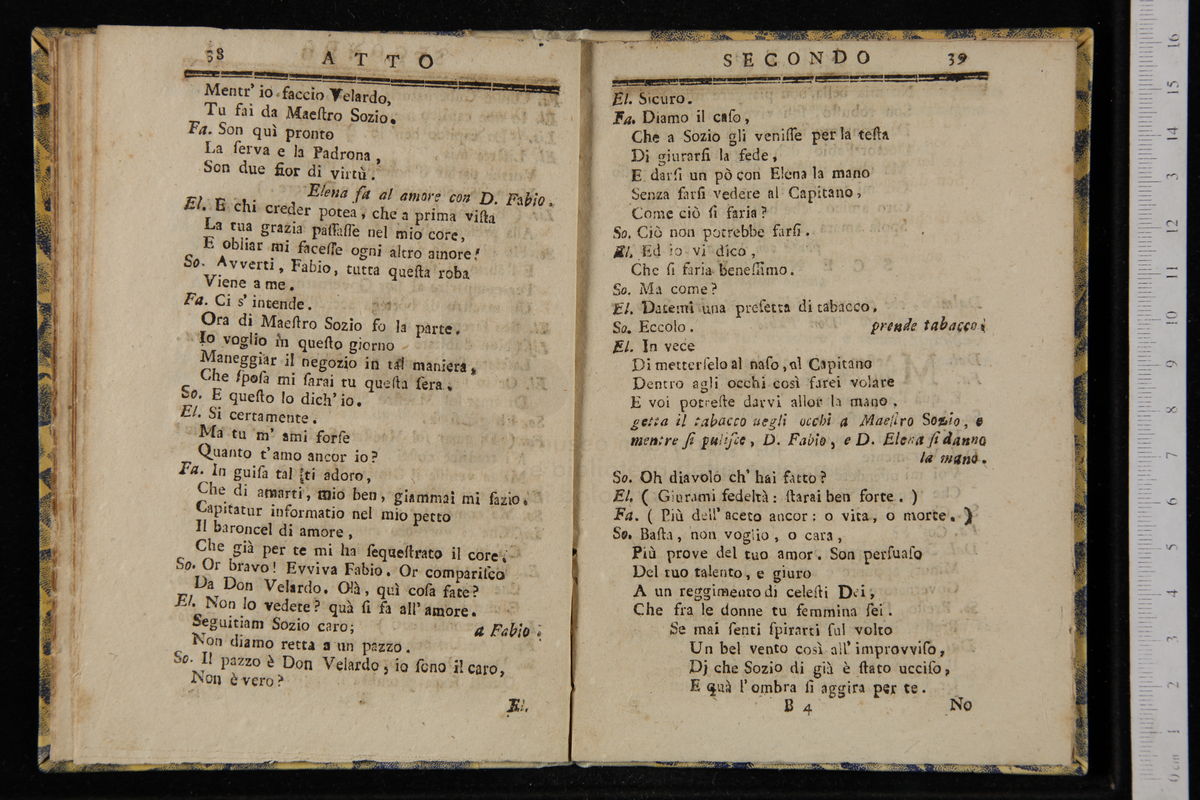 38 ATTO
Mentr' io faccio Velardo,
Tu fai da Maeſtro Sozio.
Fa. Son quì pronto
La ſerva e la Padrona,
Son due fior di virtù.
Elena fa al amore con D. Fabio.
El. E chi creder potea, che a prima viſta
La tua grazia paſſaſſe nel mio core,
E obliar mi faceſſe ogni altro amore!
So. Avverti, Fabio, tutta queſta roba
Viene a me.
Fa. Ci s' intende.
Ora di Maeſtro Sozio fo la parte.
Io voglio in queſto giorno
Maneggiar il negozio in tal maniera,
Che ſpoſa mi ſarai tu queſta ſera.
So. E queſto lo dich' io.
El. Si certamente.
Ma tu m' ami forſe
Quanto t'amo ancor io?
Fa. In guiſa tal ti adoro,
Che di amarti, mio ben, giammai mi ſazio.
Capitatur informatio nel mio petto
Il baroncel di amore,
Che già per te mi ha ſequeſtrato il core.
So. Or bravo! Evviva Fabio. Or compariſco
Da Don Velardo. Olà, quì coſa fate?
El. Non lo vedete? quà ſi fa all' amore.
Seguitiam Sozio caro; a Fabio.
Non diamo retta a un pazzo.
So. Il pazzo è Don Velardo, io ſono il caro,
Non è vero?
El.
SECONDO 39
El. Sicuro.
Fa. Diamo il caſo,
Che a Sozio gli veniſſe per la teſta
Di giurarſi la fede,
E darſi un pò con Elena la mano
Senza farſi vedere al Capitano,
Come ciò ſi faria?
So. Ciò non potrebbe farſi.
El. Ed io vi dico,
Che ſi faria beneſſimo.
So. Ma come?
El. Datemi una preſetta di tabacco.
So. Eccolo. prende tabacco.
El. In vece
Di metterſelo al naſo, al Capitano
Dentro agli occhi così farei volare
E voi potreſte darvi allor la mano.
getta il tabacco negli occhi a Maeſtro Sozio, e
mentre ſi puliſce, D. Fabio, e D. Elena ſi danno
la mano.
So. Oh diavolo ch' hai fatto?
El. ( Giurami fedeltà: ſtarai ben forte. )
Fa. ( Più dell' aceto ancor: o vita, o morte. )
So. Baſta, non voglio, o cara,
Più prove del tuo amor. Son perſuaſo
Del tuo talento, e giuro
A un reggimento di celeſti Dei,
Che fra le donne tu femmina ſei.
Se mai ſenti ſpirarti ſul volto
Un bel vento così all' improvviſo,
Dj che Sozio di già è ſtato ucciſo,
E quà l' ombra ſi aggira per te.
B 4 No